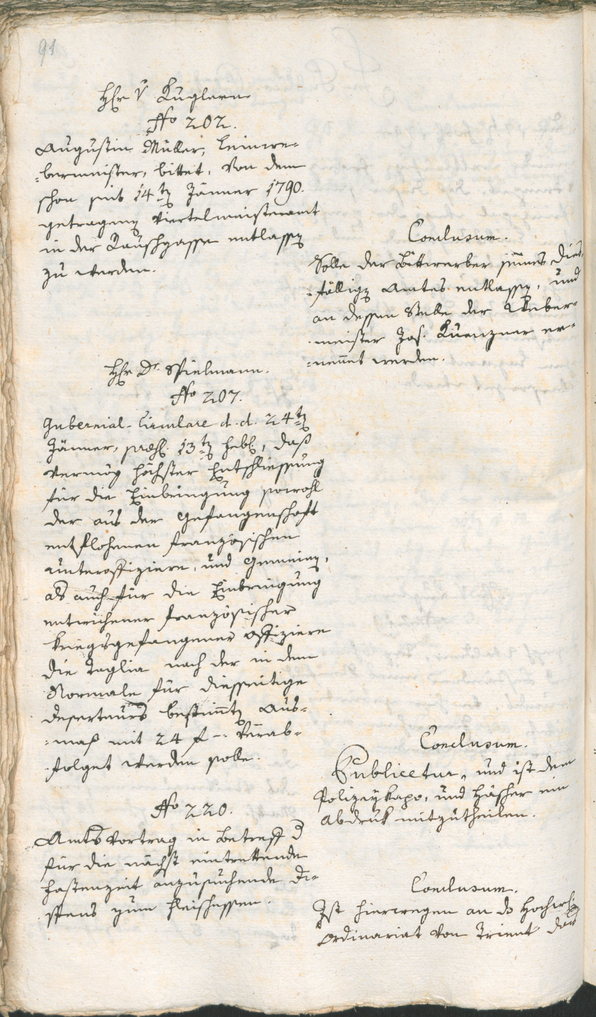 91
H̄r v Kuglern
No 202.
Augustin Müller, Leinwe-
-bermeister, bittet, von dem
schon seit 14tn Jänner 1790.
getragenen Viertelmeisteramt
in der Rauschgassen entlassen
zu werden.
Conclusum.
Solle der Bittwerber seines dies-
-fälligen Amtes entlassen, und
an dessen Stelle der Weber-
-meister Jos. Kuenzner er-
-nennt werden.
H̄r Dr. Spielmann.
No 207.
Gubernial-Circulare d. d. 24tn
Jänner, präs. 13tn Febr, daß
vermög höchster Entschliessung
für die Einbringung sowohl
der aus der Gefangenschaft
entflohenen französischen
Unteroffiziere, und Gemeinen,
als auch für die Einbringung
entwichener französischer
kriegsgefangener Offiziere
die Taglia nach der in dem
Normale für diesseitige
deserteurs bestimmten Aus-
-maß mit 24 f verab-
-folget werden solle.
Conclusum.
Publicetur, und ist dem
Polizeykapo, und Häscher ein
Abdruk mitzutheilen.
No 220.
Amtsvortrag in Betreff d
für die nächst eintrettende
Fastenzeit anzusuchende Di-
spens zum Fleischessen.
Conclusum.
Ist hierwegen an ds Hochw
Ordinariat von Trient das